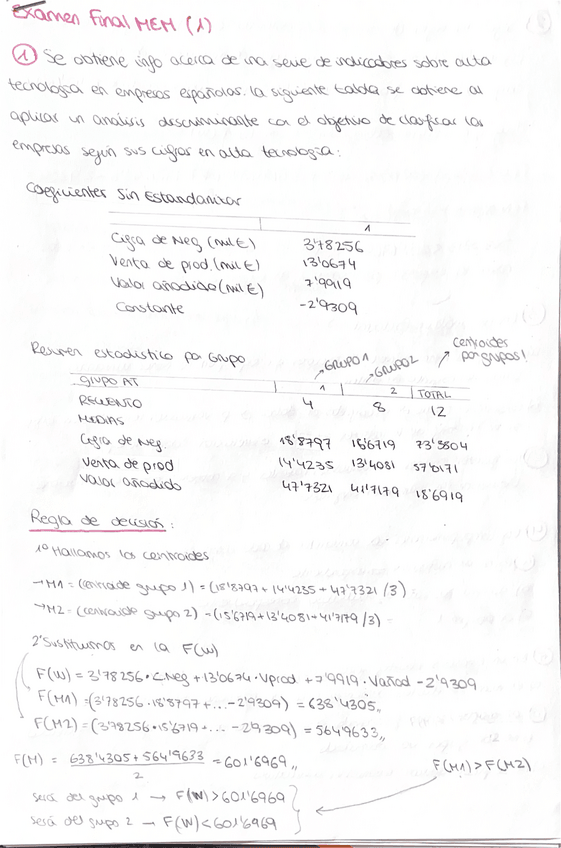 Examen Final MEM (1)
① Se obtiene info acerca de una serie de indicadores sobre alta
tecnología en empresas españolas. La siguiente tabla se obtiene al
aplicar un análisis discriminante con el objetivo de clasificar las
empresas según sus cifras en alta tecnología:
Coeficientes Sin Estandarizar
1
Cifra de Neg (mil €) 3'78256
Venta de prod. (mil €) 13'0674
Valor añadido (mil €) 7'9919
Constante -2'9309
Resumen estadístico por Grupo →GRUPO 1 →GRUPO 2 → Centroides por grupos!
GRUPO AT 1 2 TOTAL
RECUENTO 4 8 12
MEDIAS
Cifra de Neg. 18'8797 18'6719 73'5804
Venta de prod 14'4235 13'4081 57'0171
Valor añadido 47'7321 41'7179 18'6919
Regla de decisión:
1º Hallamos los centroides
→M1 = (centroide grupo 1) = (18'8797 + 14'4235 + 47'7321 /3)
→M2 = (centroide grupo 2) = (15'6719 + 13'4081 + 41'7179 /3) =
2º Sustituimos en la F(W)
F(W) = 3'78256 · C.Neg + 13'0674 · Vprod + 7'9919 · Vañad - 2'9309
F(M1) = (3'78256 · 18'8797 + ... - 2'9309) = 638'4305,,
F(M2) = (3'78256 · 15'6719 + ... - 2'9309) = 564'9633,,
F(M) = 638'4305 + 564'9633 / 2 = 601'6969,, F(M1) > F(M2)
será del grupo 1 → F(W) > 601'6969
será del grupo 2 → F(W) < 601'6969